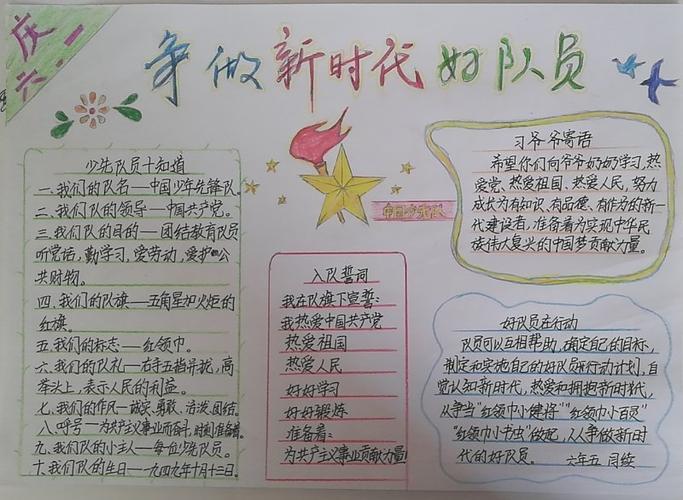 庆
六.一
争做新时代好队员
少先队员十知道
一、我们的队名——中国少年先锋队。
二、我们队的领导——中国共产党。
三、我们队的目的——团结教育队员
听党话,勤学习,爱劳动,爱护公
共财物。
四、我们的队旗——五角星加火炬的
红旗。
五、我们的标志——红领巾。
六、我们的队礼——右手五指并拢,高
举头上,表示人民的利益。
七、我们的作风——诚实、勇敢、活泼、团结。
八、呼号——为共产主义事业而奋斗,时刻准备着。
九、我们队的小主人——每位少先队员。
十、我们队的生日——一九四九年十月十三日。
中国少先队
入队誓词
我在队旗下宣誓:
我热爱中国共产党
热爱祖国
热爱人民
好好学习
好好锻炼
准备着:
为共产主义事业贡献力量
习爷爷寄语
希望你们向爷爷奶奶学习,热
爱党、热爱祖国、热爱人民,努力
成长为有知识、有品德、有作为的新一
代建设者,准备着为实现中华民
族伟大复兴的中国梦贡献力量。
好队员在行动
队员可以互相帮助,确定自己的目标,
制定和实施自己的好队员行动计划,自
觉认知新时代,热爱和拥抱新时代,
从争当“红领巾小健将”“红领巾小百灵”
“红领巾小书虫”做起,人人争做新时
代的好队员。 六年五